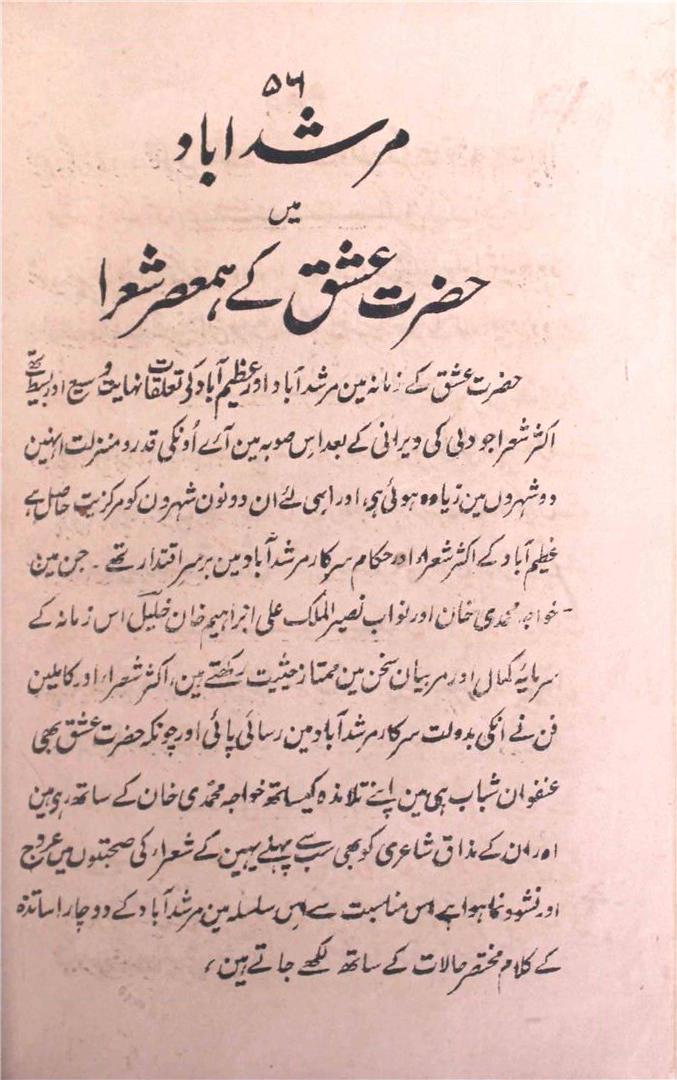 ۵۶
مرشداباد
میں
حضرت عشق کے ہمعصر شعرا
حضرت عشق کے زمانہ مین مرشدآباد اور عظیم آباد کی تعلقات نہایت وسیع اور بسیط تھے
اکثر شعرا جو دلی کی ویرانی کے بعد اس صوبہ مین آے اُونکی قدر و منزلت انہین
دو شہرون مین زیادہ ہوئی ہی، اور اسی لئے ان دونون شہرون کو مرکزیت حاصل ہے
عظیم آباد کے اکثر شعراء اور حکام سرکار مرشدآباد مین برسراقتدار تھے ۔ جن مین
خواجہ محمدی خان اور نواب نصیر الملک علی ابراہیم خان خلیل اس زمانہ کے
سرمایۂ کمال اور مربیان سخن مین ممتاز حیثیت رکھتے ہین، اکثر شعراء اور کاملین
فن نے انکی بدولت سرکار مرشدآباد مین رسائی پائی اور چونکہ حضرت عشق بھی
عنفوان شباب ہی مین اپنے تلامذہ کیساتھ خواجہ محمدی خان کے ساتھ رہی ہین
اور ان کے مذاق شاعری کو بھی سب سے پہلے یہین کے شعراء کی صحبتوں میں عروج
اور نشوونما ہوا ہے اس مناسبت سے اس سلسلہ مین مرشدآباد کے دو چار اساتذہ
کے کلام مختصر حالات کے ساتھ لکھے جاتے ہین،